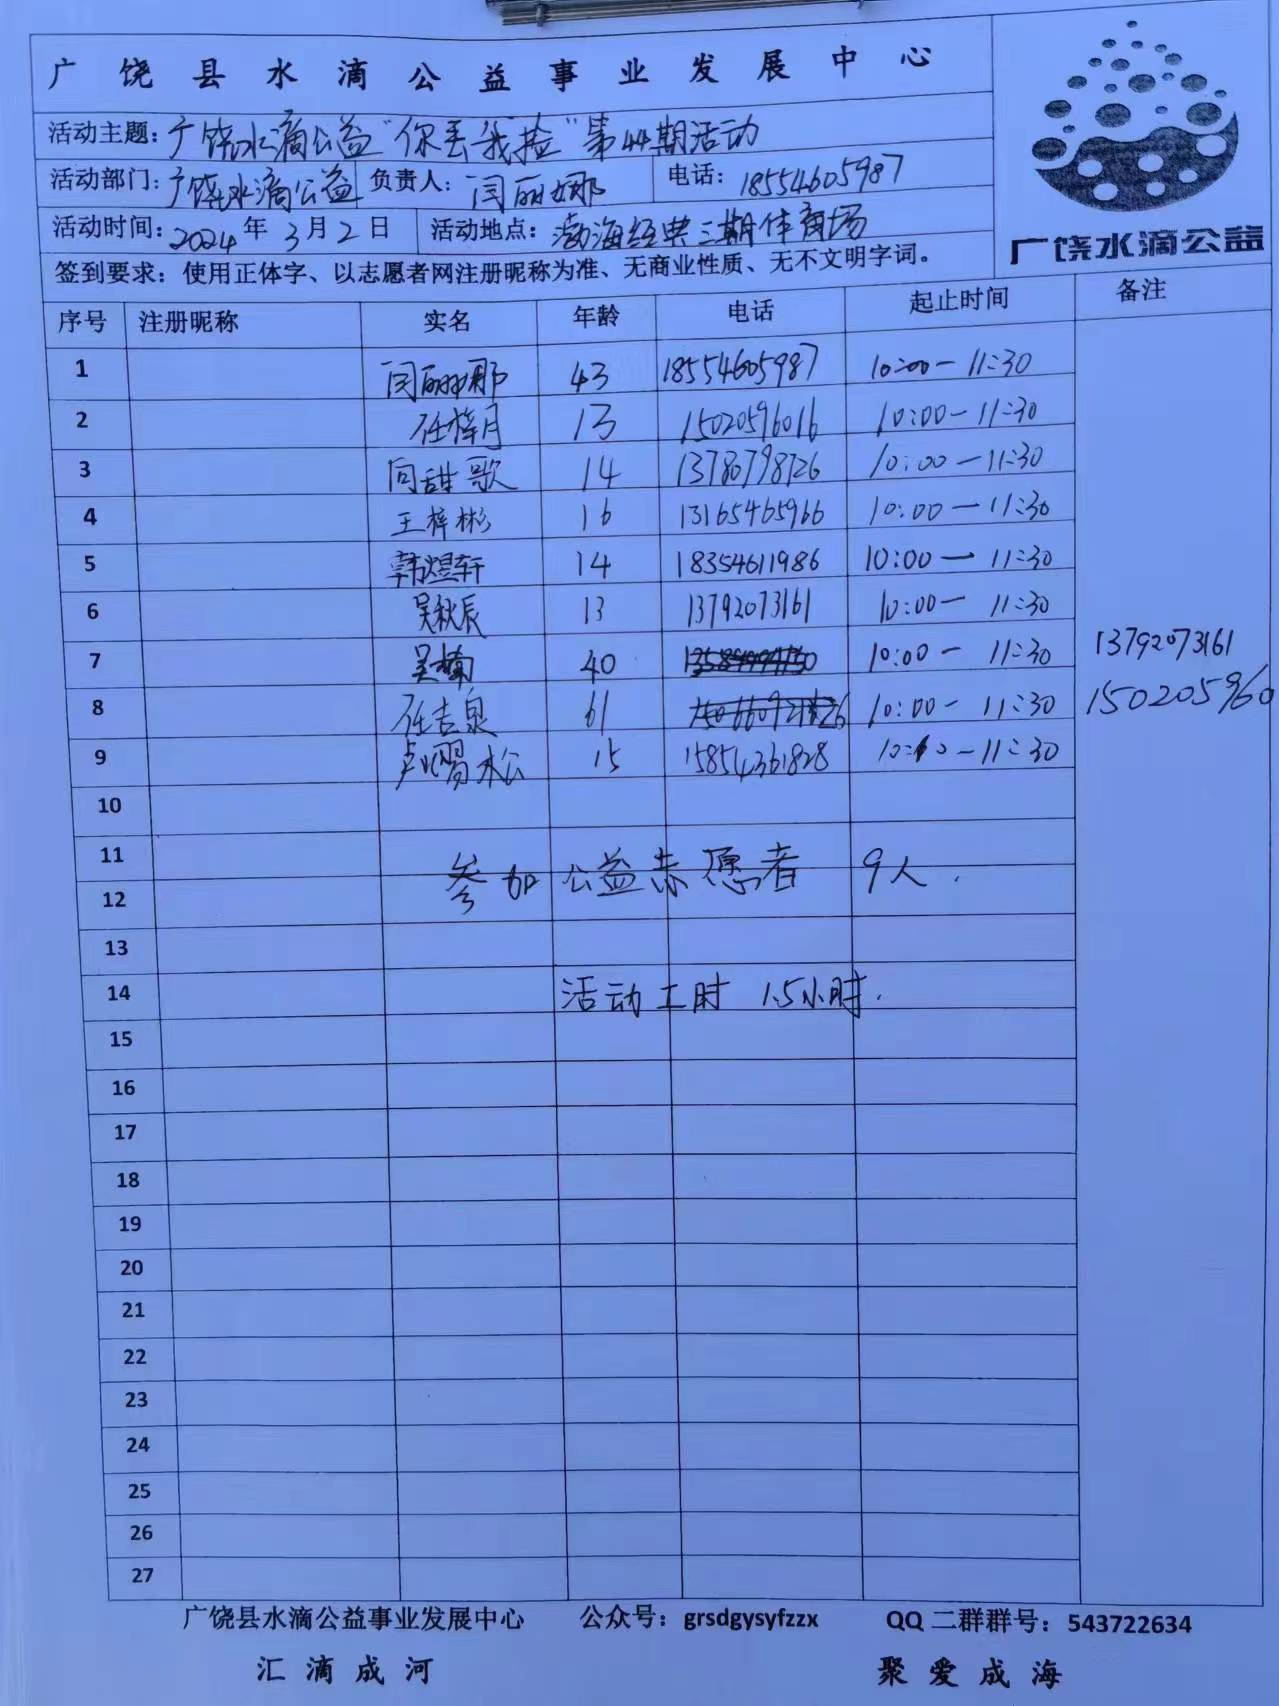 广饶县水滴公益事业发展中心
活动主题：广饶水滴公益“你丢我捡”第44期活动
活动部门：广饶水滴公益 负责人：闫丽娜 电话：18554605987
活动时间：2024年3月2日 活动地点：渤海经典三期体育场
广饶水滴公益
签到要求：使用正体字、以志愿者网注册昵称为准、无商业性质、无不文明字词。
序号 注册昵称 实名 年龄 电话 起止时间 备注
1 闫丽娜 43 18554605987 10:00-11:30
2 任梓月 13 15020596016 10:00-11:30
3 闫甜歌 14 13780798726 10:00-11:30
4 王梓彬 16 13165465966 10:00-11:30
5 韩煜轩 14 18354611986 10:00-11:30
6 吴秋辰 13 13792073161 10:00-11:30
7 吴楠 40 10:00-11:30 13792073161
8 任吉泉 61 10:00-11:30 150205960
9 15 15854361828 10:10-11:30
10
11
参加公益志愿者 9人.
12
13
14 活动工时 1.5小时.
15
16
17
18
19
20
21
22
23
24
25
26
27
广饶县水滴公益事业发展中心 公众号：grsdgysyfzzx QQ二群群号：543722634
汇滴成河 聚爱成海